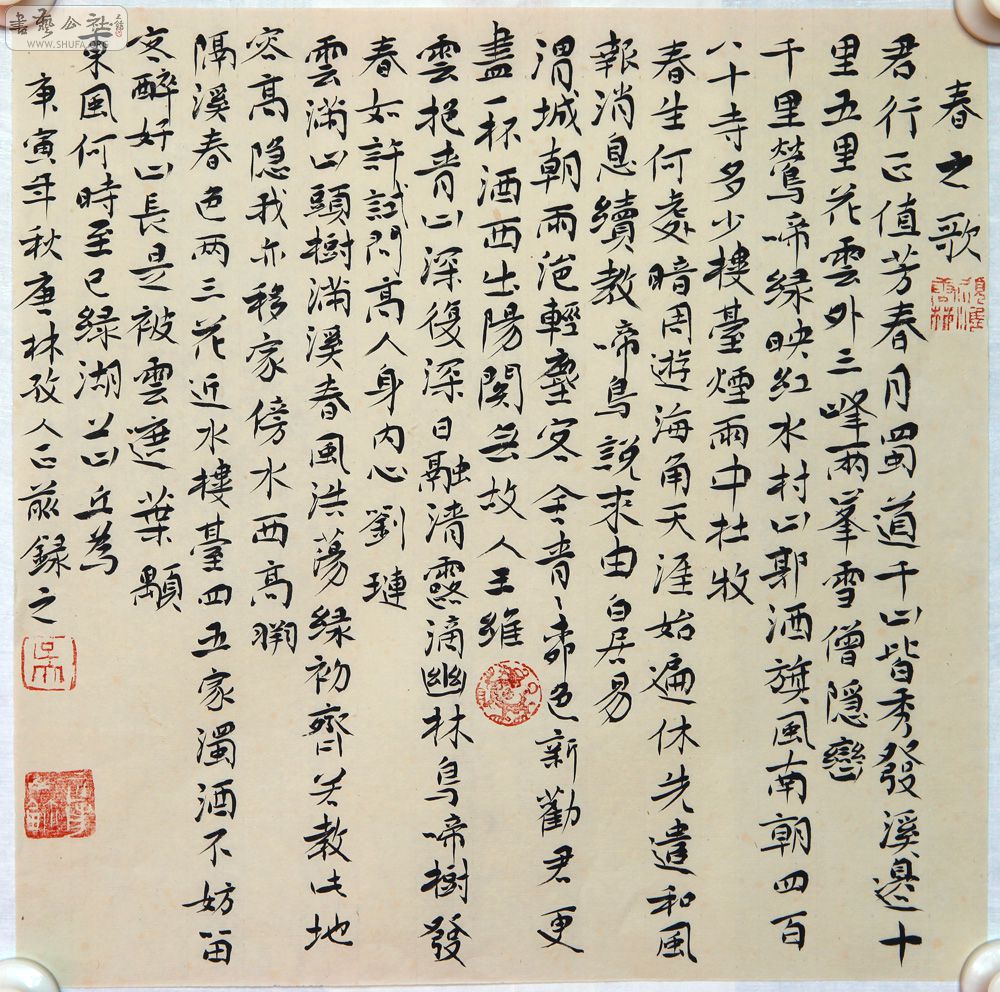 春之歌
君行正值芳春月蜀道千山皆秀發溪邊十
里五里花雲外三峰兩峯雪僧隱巒
千里鶯啼緑映紅水村山郭酒旗風南朝四百
八十寺多少樓臺煙雨中杜牧
春生何處暗周遊海角天涯始遍休先遣和風
報消息續教啼鳥說來由白居易
渭城朝雨浥輕塵客舍青〻柳色新勸君更
盡一杯酒西出陽關無故人王維
雲抱青山深復深日融清露滴幽林鳥啼樹發
春如許試問高人身内心劉璉
雲滿山頭樹滿溪春風浩蕩緑初齊若教此地
容高隐我亦移家傍水西高翔
隔溪春色两三花近水樓臺四五家濁酒不妨留
客醉好山長是被雲遮葉顒
東風何時至已緑湖上山丘為
庚寅年秋唐林孜人正茲録之
書藝公社
WWW.SHUFA.ORG